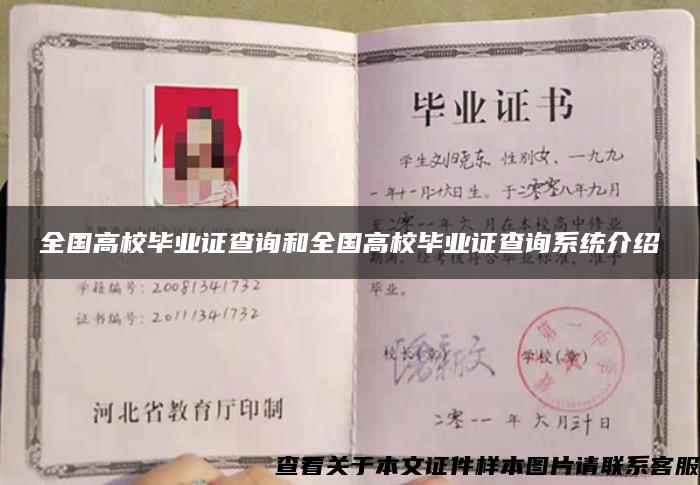 毕业证书
学生刘晓东 性别女、一九九
一年十一月十六日生。于二零零八年九月
至二零一一年六月在本校高中修业
期满、经考核符合毕业标准，准予
毕业。
全国高校毕业证查询和全国高校毕业证查询系统介绍
学籍编号：20081341732
证书编号：20111341732
校长(章)
学校(章)
第一中学
河北省教育厅印制
二零一一年六月三十日
查看关于本文证件样本图片请联系客服